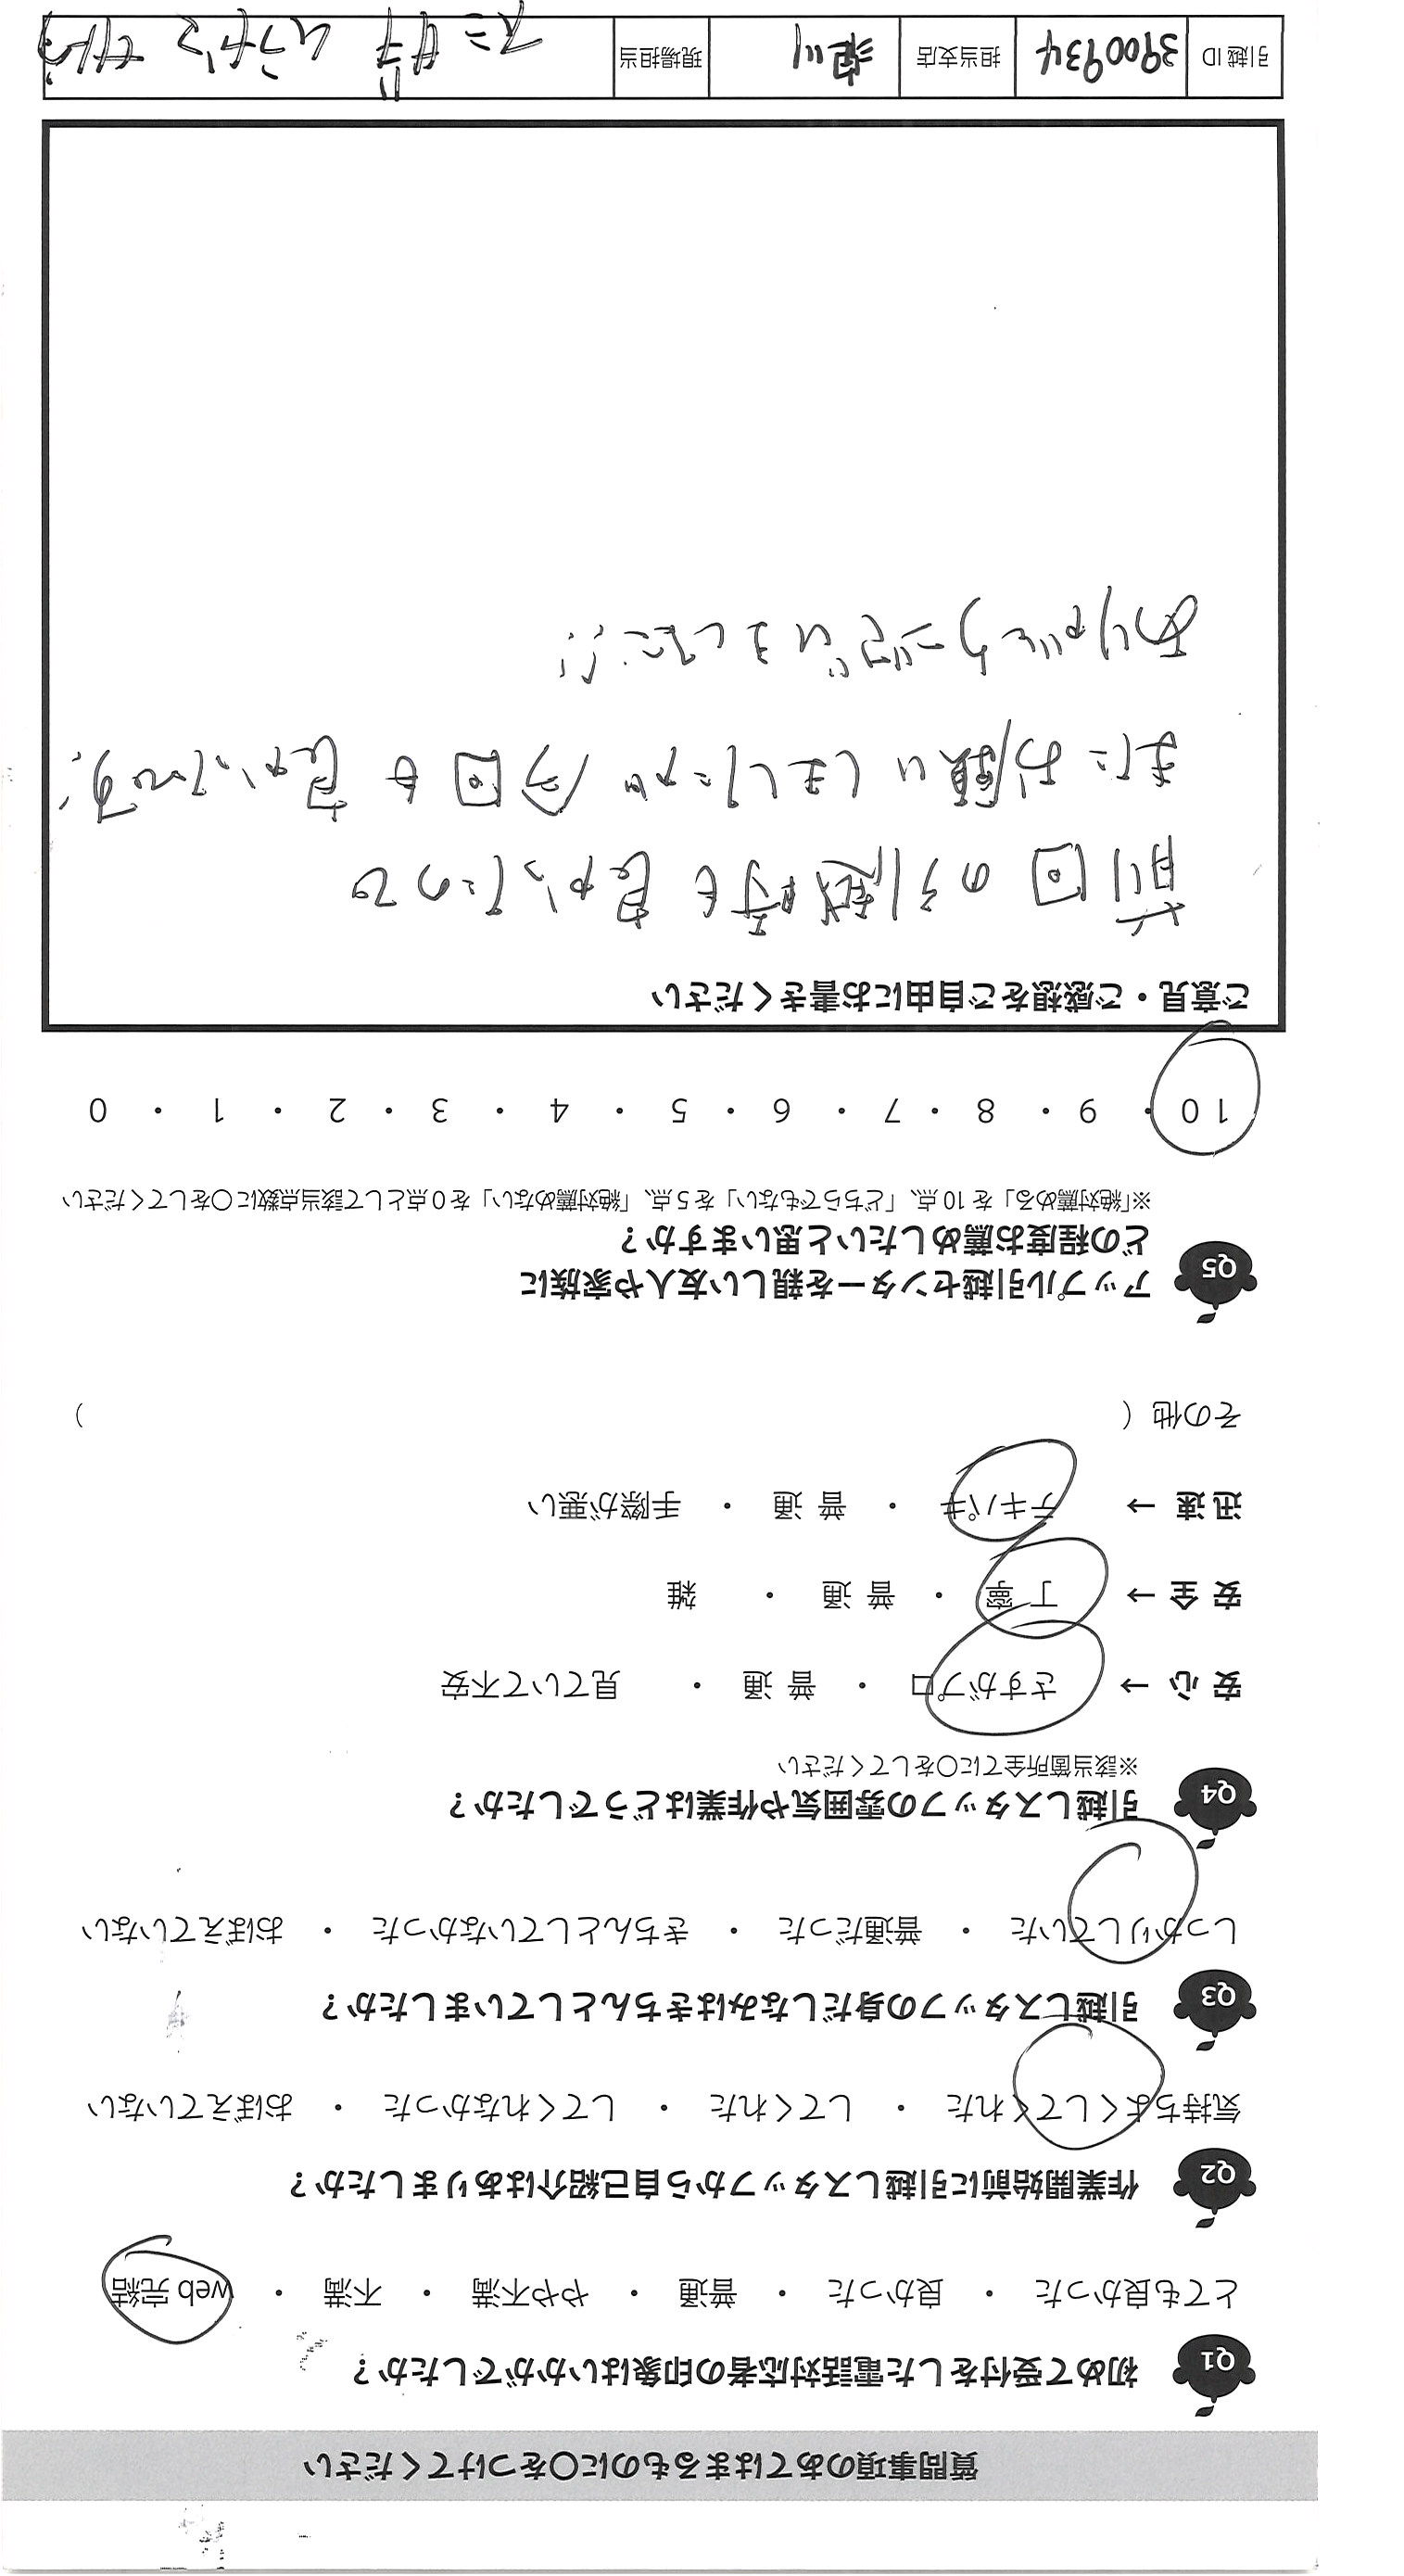 質問事項のあてはまるものに〇をつけてください
Q1 初めて受付をした電話対応者の印象はいかがでしたか？
とても良かった ・ 良かった ・ 普通 ・ やや不満 ・ 不満 ・ web 完結
Q2 作業開始前に引越しスタッフから自己紹介はありましたか？
気持ちよくしてくれた ・ してくれた ・ してくれなかった ・ おぼえていない
Q3 引越しスタッフの身だしなみはきちんとしていましたか？
しっかりしていた ・ 普通だった ・ きちんとしていなかった ・ おぼえていない
Q4 引越しスタッフの雰囲気や作業はどうでしたか？
※該当箇所全てに〇をしてください
安 心 → さすがプロ ・ 普 通 ・ 見ていて不安
安 全 → 丁 寧 ・ 普 通 ・ 雑
迅 速 → テキパキ ・ 普 通 ・ 手際が悪い
その他（ ）
Q5 アップル引越センターを親しい友人や家族に
どの程度お薦めしたいと思いますか？
※「絶対薦める」を 10 点、「どちらでもない」を 5 点、「絶対薦めない」を 0 点として該当点数に〇をしてください
10 ・ 9 ・ 8 ・ 7 ・ 6 ・ 5 ・ 4 ・ 3 ・ 2 ・ 1 ・ 0
ご意見・ご感想をご自由にお書きください
前回の引越時も良かったので
またお願いしましたが今回も良かったです。
ありがとうございました!!
引越 ID 3900934 担当支店 現場担当